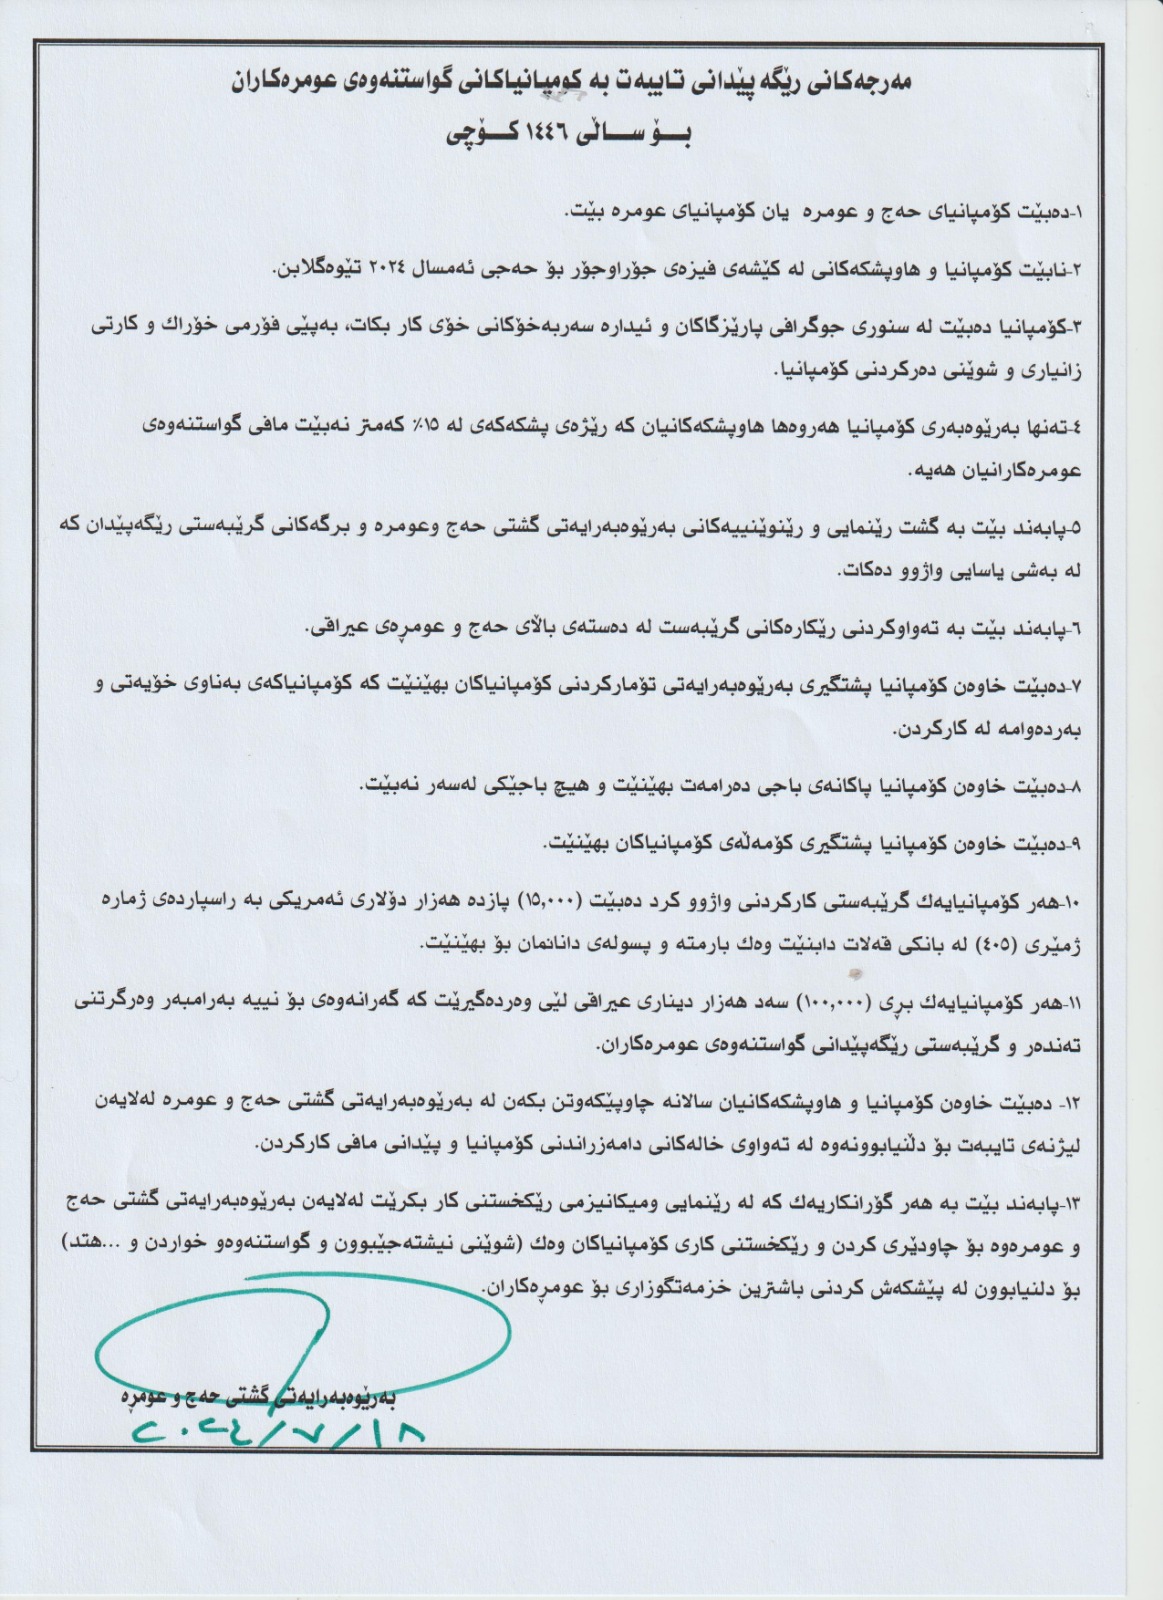 مەرجەکانی رێگە پێدانی تایبەت بە کومپانیاکانی گواستنەوەی عومرەکاران
بـــۆ ســـاڵی ١٤٤٦ کـــۆچی
١-دەبێت کۆمپانیای حەج و عومرە یان کۆمپانیای عومرە بێت.
٢-نابێت کۆمپانیا و هاوپشکەکانی لە کێشەی فیزەی جۆراوجۆر بۆ حەجی ئەمسال ٢٠٢٤ تێوەگلابن.
٣-کۆمپانیا دەبێت لە سنوری جوگرافی پارێزگاکان و ئیدارە سەربەخۆکانی خۆی کار بکات، بەپێی فۆرمی خۆراك و کارتی
زانیاری و شوێنی دەرکردنی کۆمپانیا.
٤-تەنها بەرێوەبەری کۆمپانیا هەروەها هاوپشکەکانیان کە رێژەی پشکەکەی لە ١٥٪ کەمتر نەبێت مافی گواستنەوەی
عومرەکارانیان هەیە.
٥-پابەند بێت بە گشت رێنمایی و رێنوێنییەکانی بەرێوەبەرایەتی گشتی حەج وعومرە و برگەکانی گرێبەستی رێگەپێدان کە
لە بەشی یاسایی واژوو دەکات.
٦-پابەند بێت بە تەواوکردنی رێکارەکانی گرێبەست لە دەستەی باڵای حەج و عومڕەی عیراقی.
٧-دەبێت خاوەن کۆمپانیا پشتگیری بەرێوەبەرایەتی تۆمارکردنی کۆمپانیاکان بهێنێت کە کۆمپانیاکەی بەناوی خۆیەتی و
بەردەوامە لە کارکردن.
٨-دەبێت خاوەن کۆمپانیا پاکانەی باجی دەرامەت بهێنێت و هیچ باجێکی لەسەر نەبێت.
٩-دەبێت خاوەن کۆمپانیا پشتگیری کۆمەڵەی کۆمپانیاکان بهێنێت.
١٠-هەر کۆمپانیایەك گرێبەستی کارکردنی واژوو کرد دەبێت (١٥,٠٠٠) پازدە هەزار دۆلاری ئەمریکی بە راسپاردەی ژمارە
ژمێری (٤٠٥) لە بانکی قەلات دابنێت وەك بارمتە و پسولەی دانانمان بۆ بهێنێت.
١١-هەر کۆمپانیایەك بڕی (١٠٠,٠٠٠) سەد هەزار دیناری عیراقی لێی وەردەگیرێت کە گەرانەوەی بۆ نییە بەرامبەر وەرگرتنی
تەندەر و گرێبەستی رێگەپێدانی گواستنەوەی عومرەکاران.
١٢- دەبێت خاوەن کۆمپانیا و هاوپشکەکانیان سالانە چاوپێکەوتن بکەن لە بەرێوەبەرایەتی گشتی حەج و عومرە لەلایەن
لیژنەی تایبەت بۆ دڵنیابوونەوە لە تەواوی خالەکانی دامەزراندنی کۆمپانیا و پێدانی مافی کارکردن.
١٣-پابەند بێت بە هەر گۆرانکاریەك کە لە رێنمایی ومیکانیزمی رێکخستنی کار بکرێت لەلایەن بەرێوەبەرایەتی گشتی حەج
و عومرەوە بۆ چاودێری کردن و رێکخستنی کاری کۆمپانیاکان وەك (شوێنی نیشتەجێبوون و گواستنەوەو خواردن و ...هتد)
بۆ دلنیابوون لە پێشکەش کردنی باشترین خزمەتگوزاری بۆ عومڕەکاران.
بەرێوەبەرایەتی گشتی حەج و عومڕە
٢٠٢٤/٧/١٨